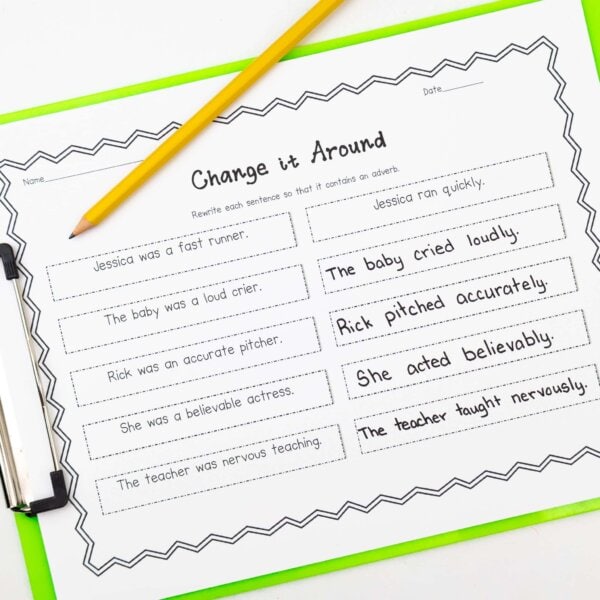 Date
Name
Change it Around
Rewrite each sentence so that it contains an adverb.
Jessica was a fast runner.
Jessica ran quickly.
The baby was a loud crier.
The baby cried loudly.
Rick was an accurate pitcher.
Rick pitched accurately.
She was a believable actress.
She acted believably.
The teacher was nervous teaching.
The teacher taught nervously.